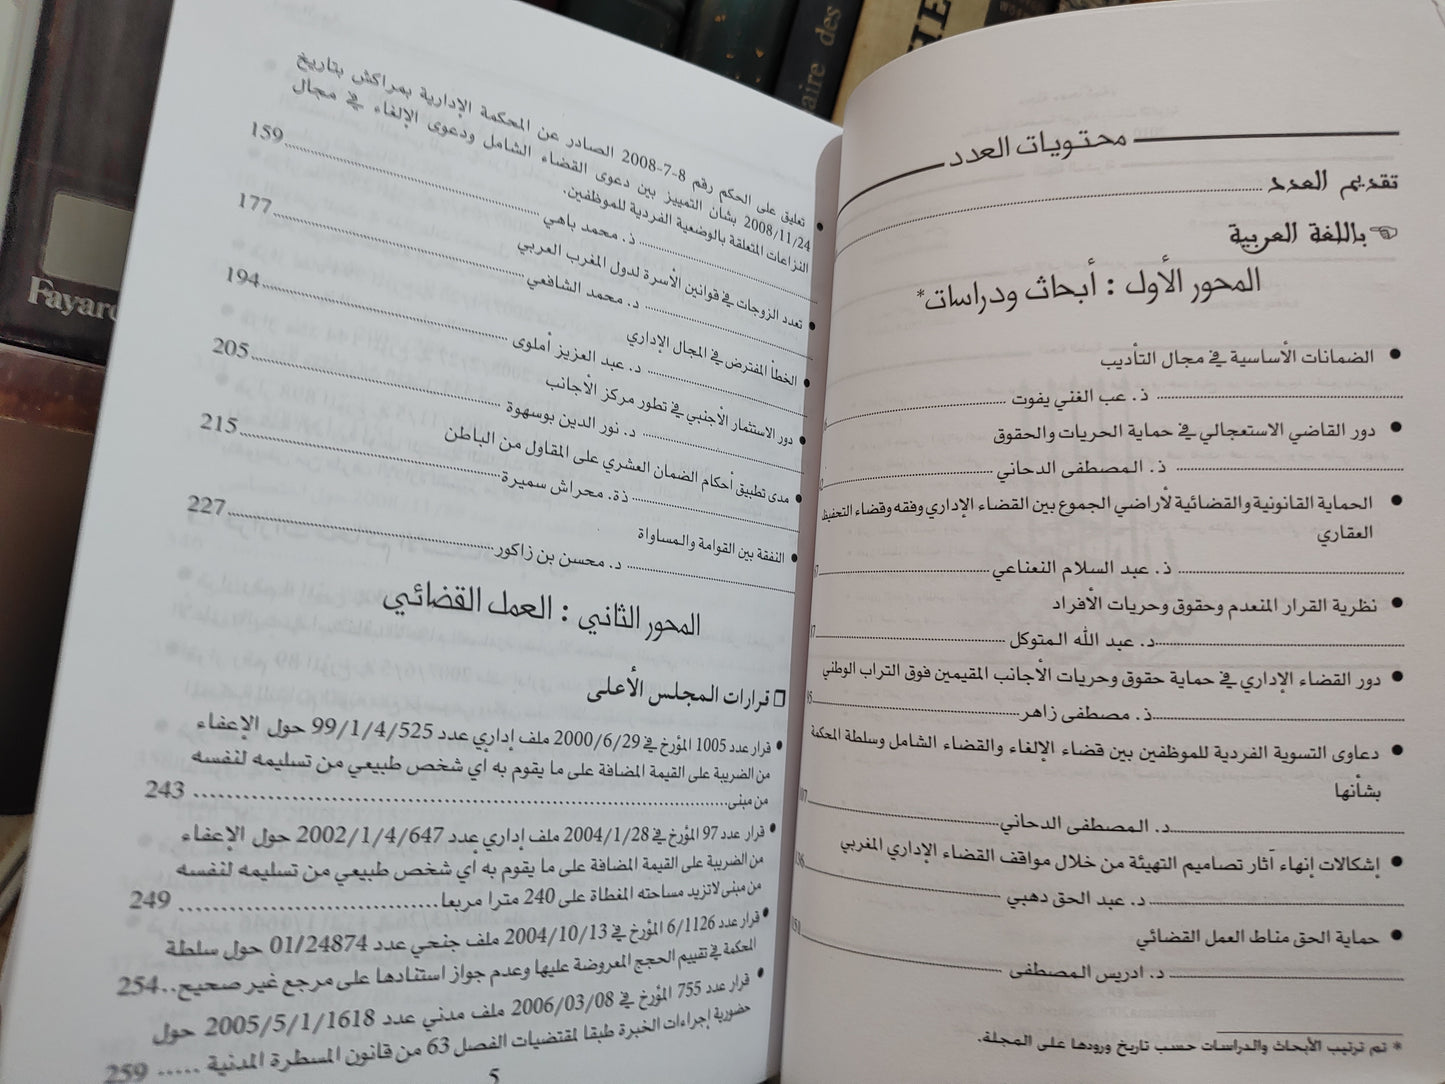 محتويات العدد
تقديم العدد
باللغة العربية
المحور الأول : أبحاث ودراسات*
• الضمانات الأساسية في مجال التأديب
ذ. عب الغني يفوت
• دور القاضي الاستعجالي في حماية الحريات والحقوق
ذ. المصطفى الدحاني
• الحماية القانونية والقضائية لأراضي الجموع بين القضاء الإداري وفقه وقضاء التحفيظ
العقاري
ذ. عبد السلام النعناعي
• نظرية القرار المنعدم وحقوق وحريات الأفراد
د. عبد الله المتوكل
• دور القضاء الإداري في حماية حقوق وحريات الأجانب المقيمين فوق التراب الوطني
ذ. مصطفى زاهر
• دعاوى التسوية الفردية للموظفين بين قضاء الإلغاء والقضاء الشامل وسلطة المحكمة
بشأنها
د. المصطفى الدحاني
• إشكالات إنهاء آثار تصاميم التهيئة من خلال مواقف القضاء الإداري المغربي
د. عبد الحق دهبي
• حماية الحق مناط العمل القضائي
د. ادريس المصطفى
* تم ترتيب الأبحاث والدراسات حسب تاريخ ورودها على المجلة.
• تعليق على الحكم رقم 8-7-2008 الصادر عن المحكمة الإدارية بمراكش بتاريخ
2008/11/24 بشأن التمييز بين دعوى القضاء الشامل ودعوى الإلغاء في مجال
النزاعات المتعلقة بالوضعية الفردية للموظفين.
ذ. محمد باهي 159
• تعدد الزوجات في قوانين الأسرة لدول المغرب العربي
د. محمد الشافعي 177
• الخطأ المفترض في المجال الإداري
د. عبد العزيز أملوى 194
• دور الاستثمار الأجنبي في تطور مركز الأجانب
د. نور الدين بوسهوة 205
• مدى تطبيق أحكام الضمان العشري على المقاول من الباطن
ذة. محراش سميرة 215
• النفقة بين القوامة والمساواة
د. محسن بن زاكور 227
المحور الثاني : العمل القضائي
❐ قرارات المجلس الأعلى
• قرار عدد 1005 المؤرخ في 2000/6/29 ملف إداري عدد 99/1/4/525 حول الإعفاء
من الضريبة على القيمة المضافة على ما يقوم به اي شخص طبيعي من تسليمه لنفسه
من مبنى 243
• قرار عدد 97 المؤرخ في 2004/1/28 ملف إداري عدد 2002/1/4/647 حول الإعفاء
من الضريبة على القيمة المضافة على ما يقوم به اي شخص طبيعي من تسليمه لنفسه
من مبنى لاتزيد مساحته المغطاة على 240 مترا مربعا 249
• قرار عدد 6/1126 المؤرخ في 2004/10/13 ملف جنحي عدد 01/24874 حول سلطة
المحكمة في تقييم الحجج المعروضة عليها وعدم جواز استنادها على مرجع غير صحيح.. 254
• قرار عدد 755 المؤرخ في 2006/03/08 ملف مدني عدد 2005/5/1/1618 حول
حضورية إجراءات الخبرة طبقا لمقتضيات الفصل 63 من قانون المسطرة المدنية ..... 259
5
Fayard
aire des